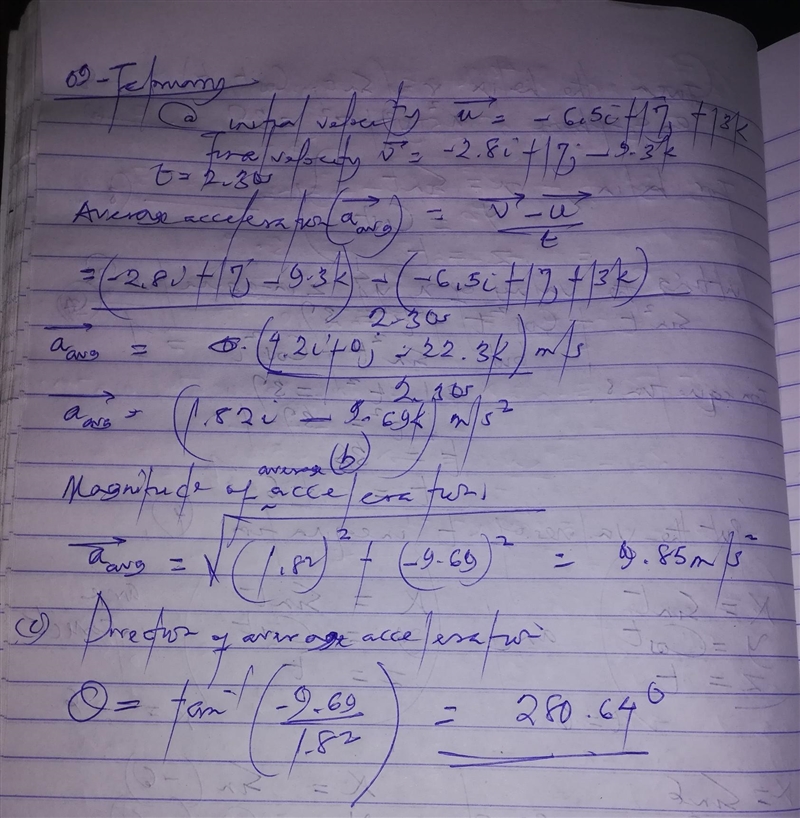 09-February
(a) initial velocity u⃗ = -6.5i+17j+13k
Final velocity v⃗ = -2.8i+17j-9.3k
t=2.30s
Average acceleration (a⃗avg) = (v⃗-u⃗)/t
= ((-2.8i+17j-9.3k)-(-6.5i+17j+13k))/2.30s
a⃗avg = (4.2i+0j-22.3k) m/s / 2.30s
a⃗avg = (1.82i-9.69k) m/s²
(b)
Magnitude of average acceleration
a⃗avg = √(1.82)²+(-9.69)² = 9.85m/s²
(c) Direction of average acceleration
θ = tan⁻¹(-9.69/1.82) = 280.64°